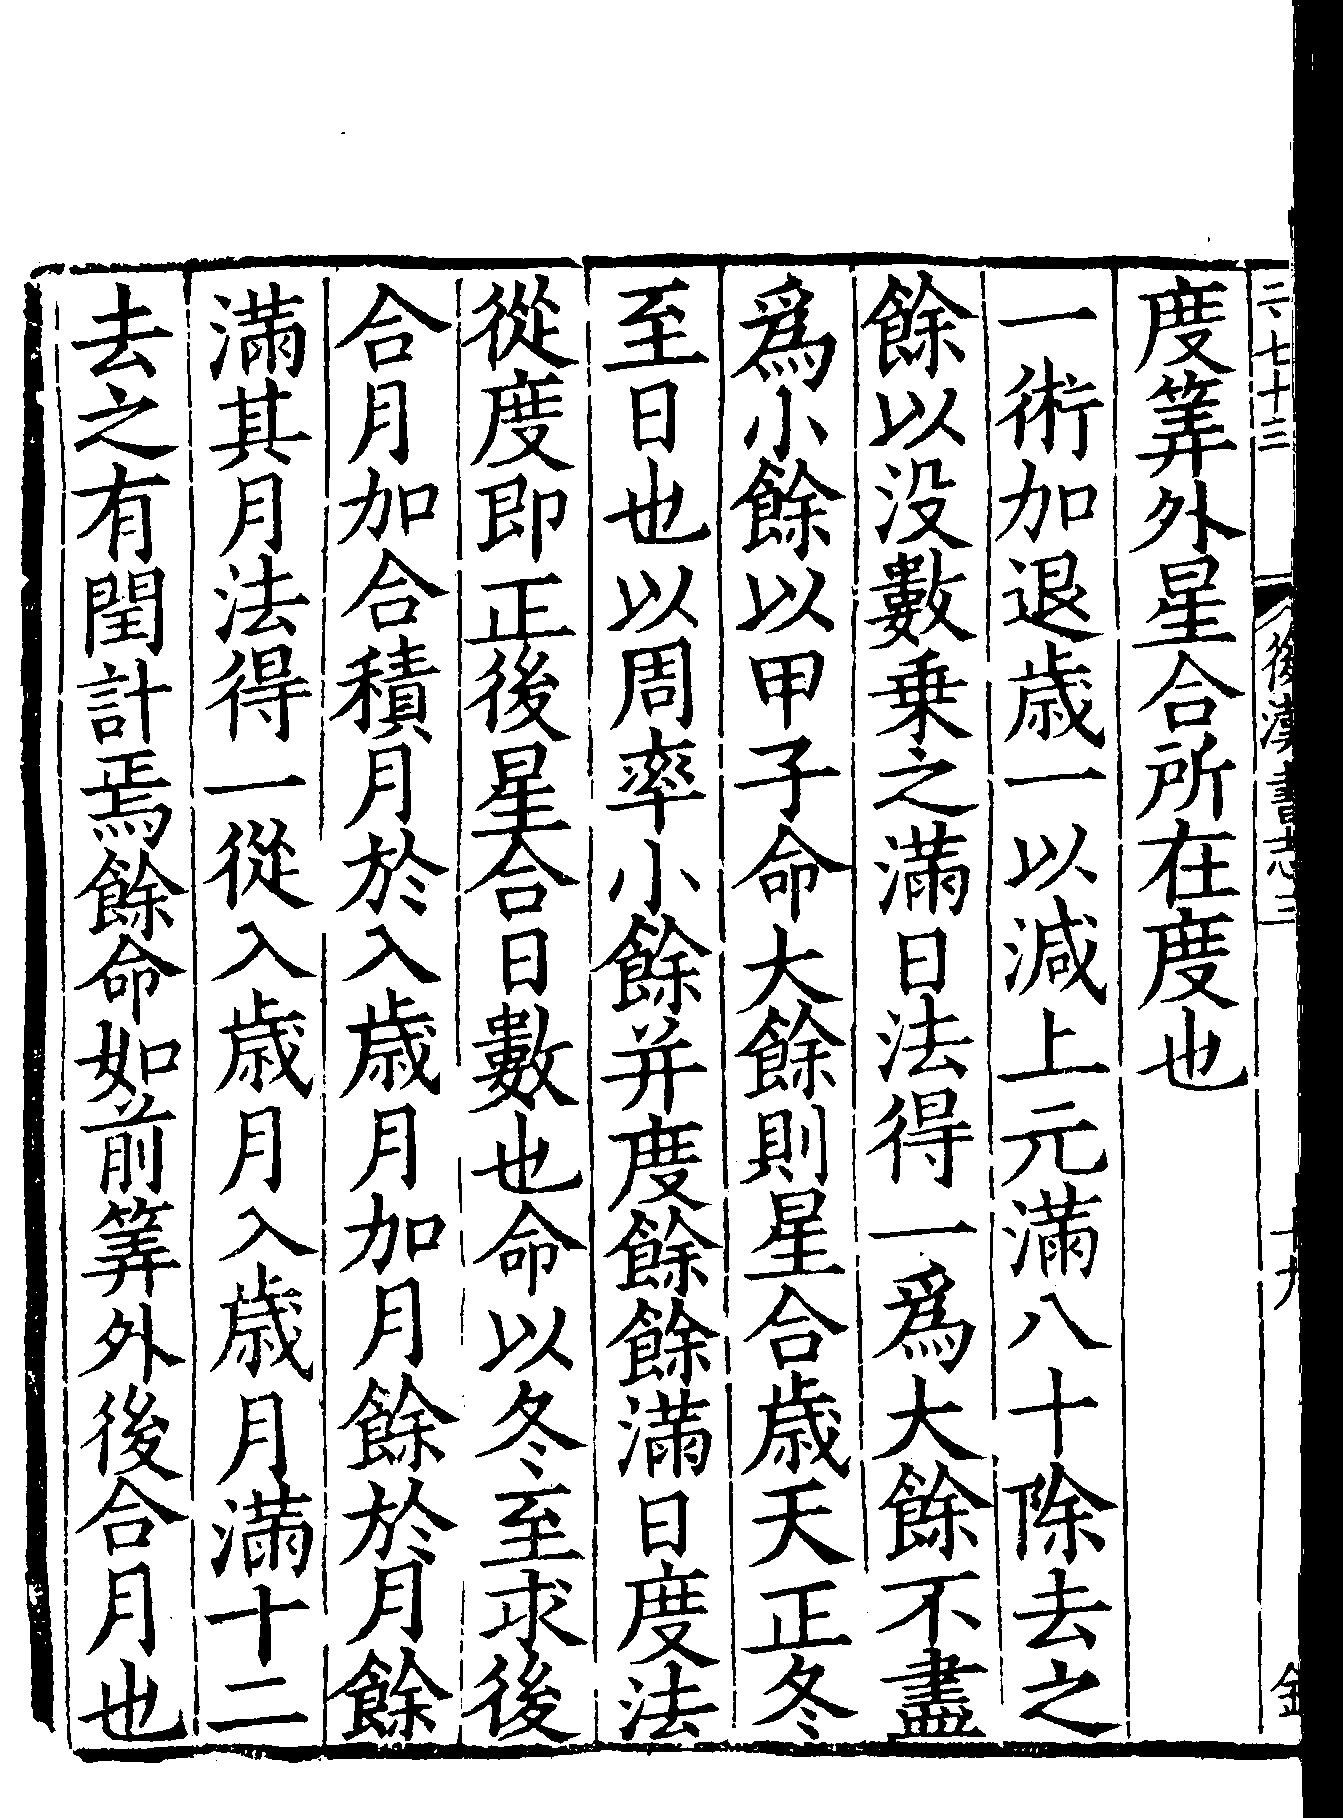 二七十三
後漢書志三
十九
度筭外星合所在度也
一術加退歳一以減上元滿八十除去之
餘以没數乗之滿日法得一爲大餘不盡
爲小餘以甲子命大餘則星合歳天正冬
至日也以周率小餘并度餘餘滿日度法
從度即正後星合日數也命以冬至求後
合月加合積月於入歳月加月餘於月餘
滿其月法得一從入歳月入歳月滿十二
去之有閏計焉餘命如前筭外後合月也